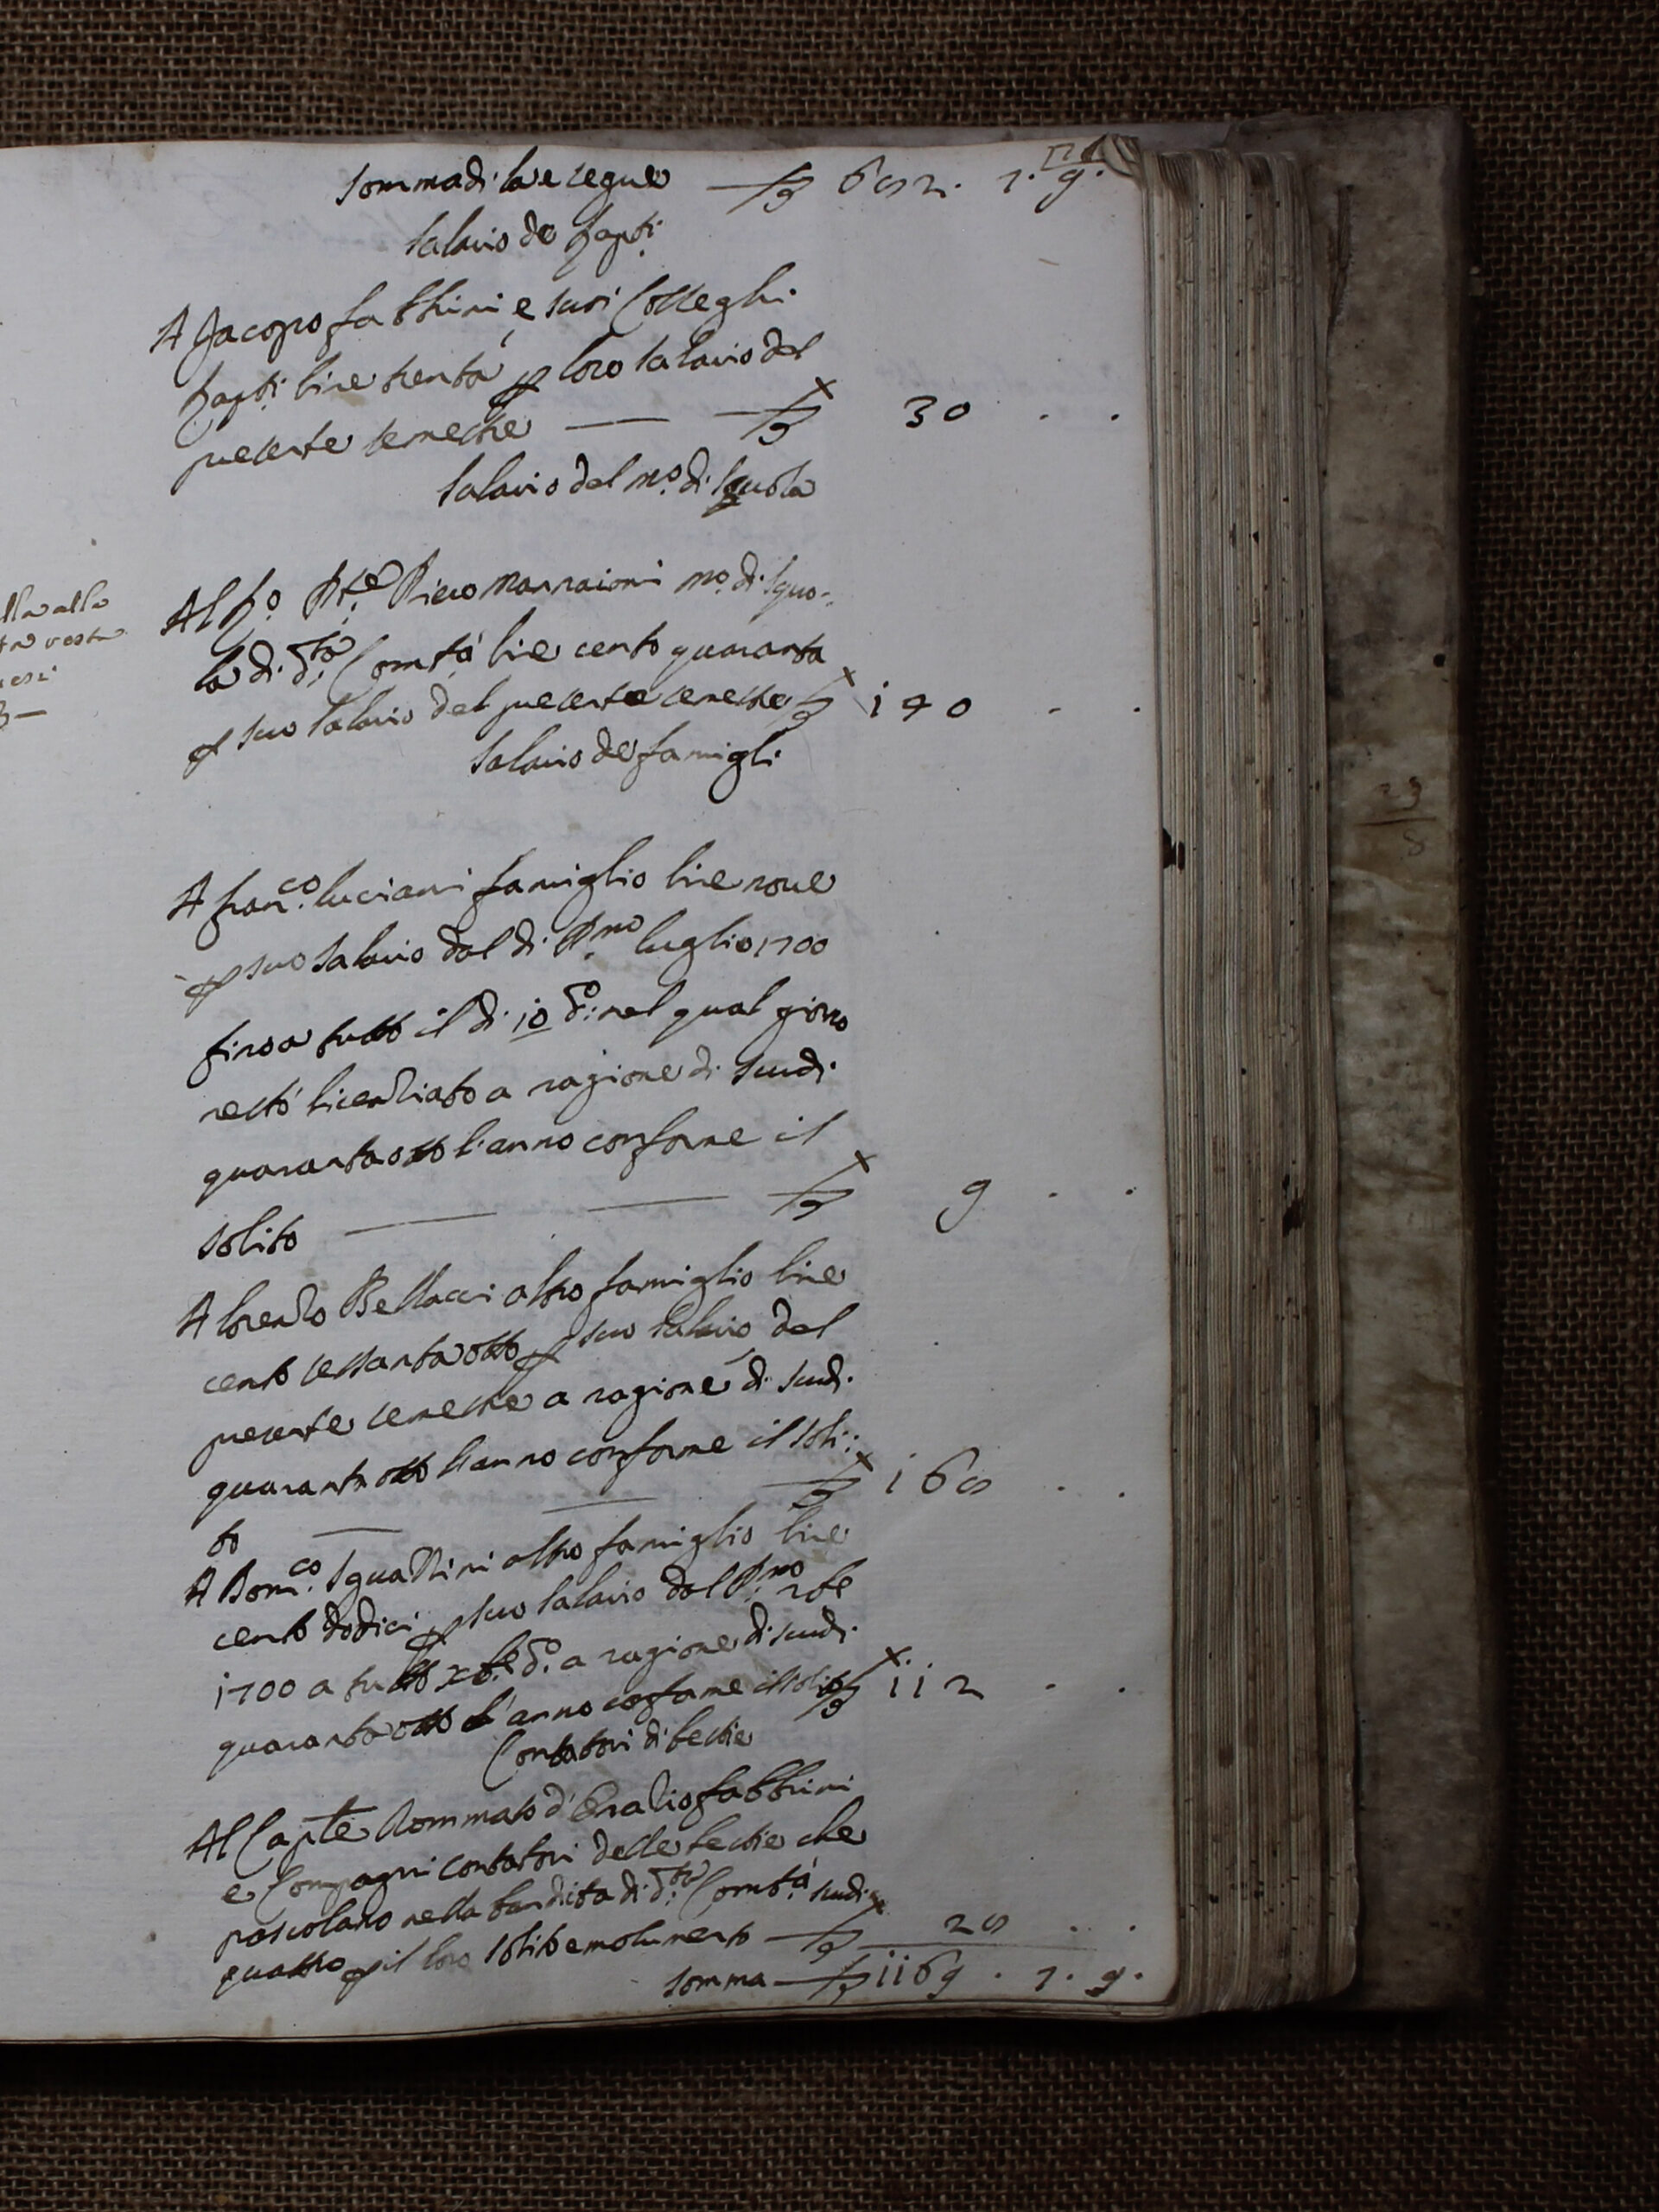 Somma di la e segue £ 682. 7. 9.
Salario de Rapp.ti
A Jacopo fabbrini e suoi Colleghi
Rapp.ti lire trenta p loro salario del
presente semestre — £ 30 . .
Salario del m.o di squola
Al R.o P.te Piero Marraioni m.o di squo-
la di d.ta Com.tà lire cento quaranta
p suo salario del presente semestre £ 140 . .
Salario de famigli
A fran.co luciani famiglio lire nove
p suo salario dal di P.mo luglio 1700
fino a tutto il di 10 d.o nel qual giorno
restò licenziato a ragione di scudi
quarantaotto l'anno conforme il
solito — £ 9 . .
A lorenzo Bellacci altro famiglio lire
cento sessantaotto p suo salario del
presente semestre a ragione di scudi
quarantaotto l'anno conforme il soli:
to — £ 168 . .
A Dom.co Squazzini altro famiglio lire
cento dodici p suo salario dal P.mo 7bre
1700 a tutto xbre d.o a ragione di scudi
quarantaotto l'anno conforme il solito £ 112 . .
Contatori di bestie
Al Cap.te Tommaso d'Orazio fabbrini
e Compagni contatori delle bestie che
pascolano nella bandita di d.ta Com.tà scudi
quattro p il loro solito emolumento — £ 28 . .
Somma — £ 1169 . 7. 9.